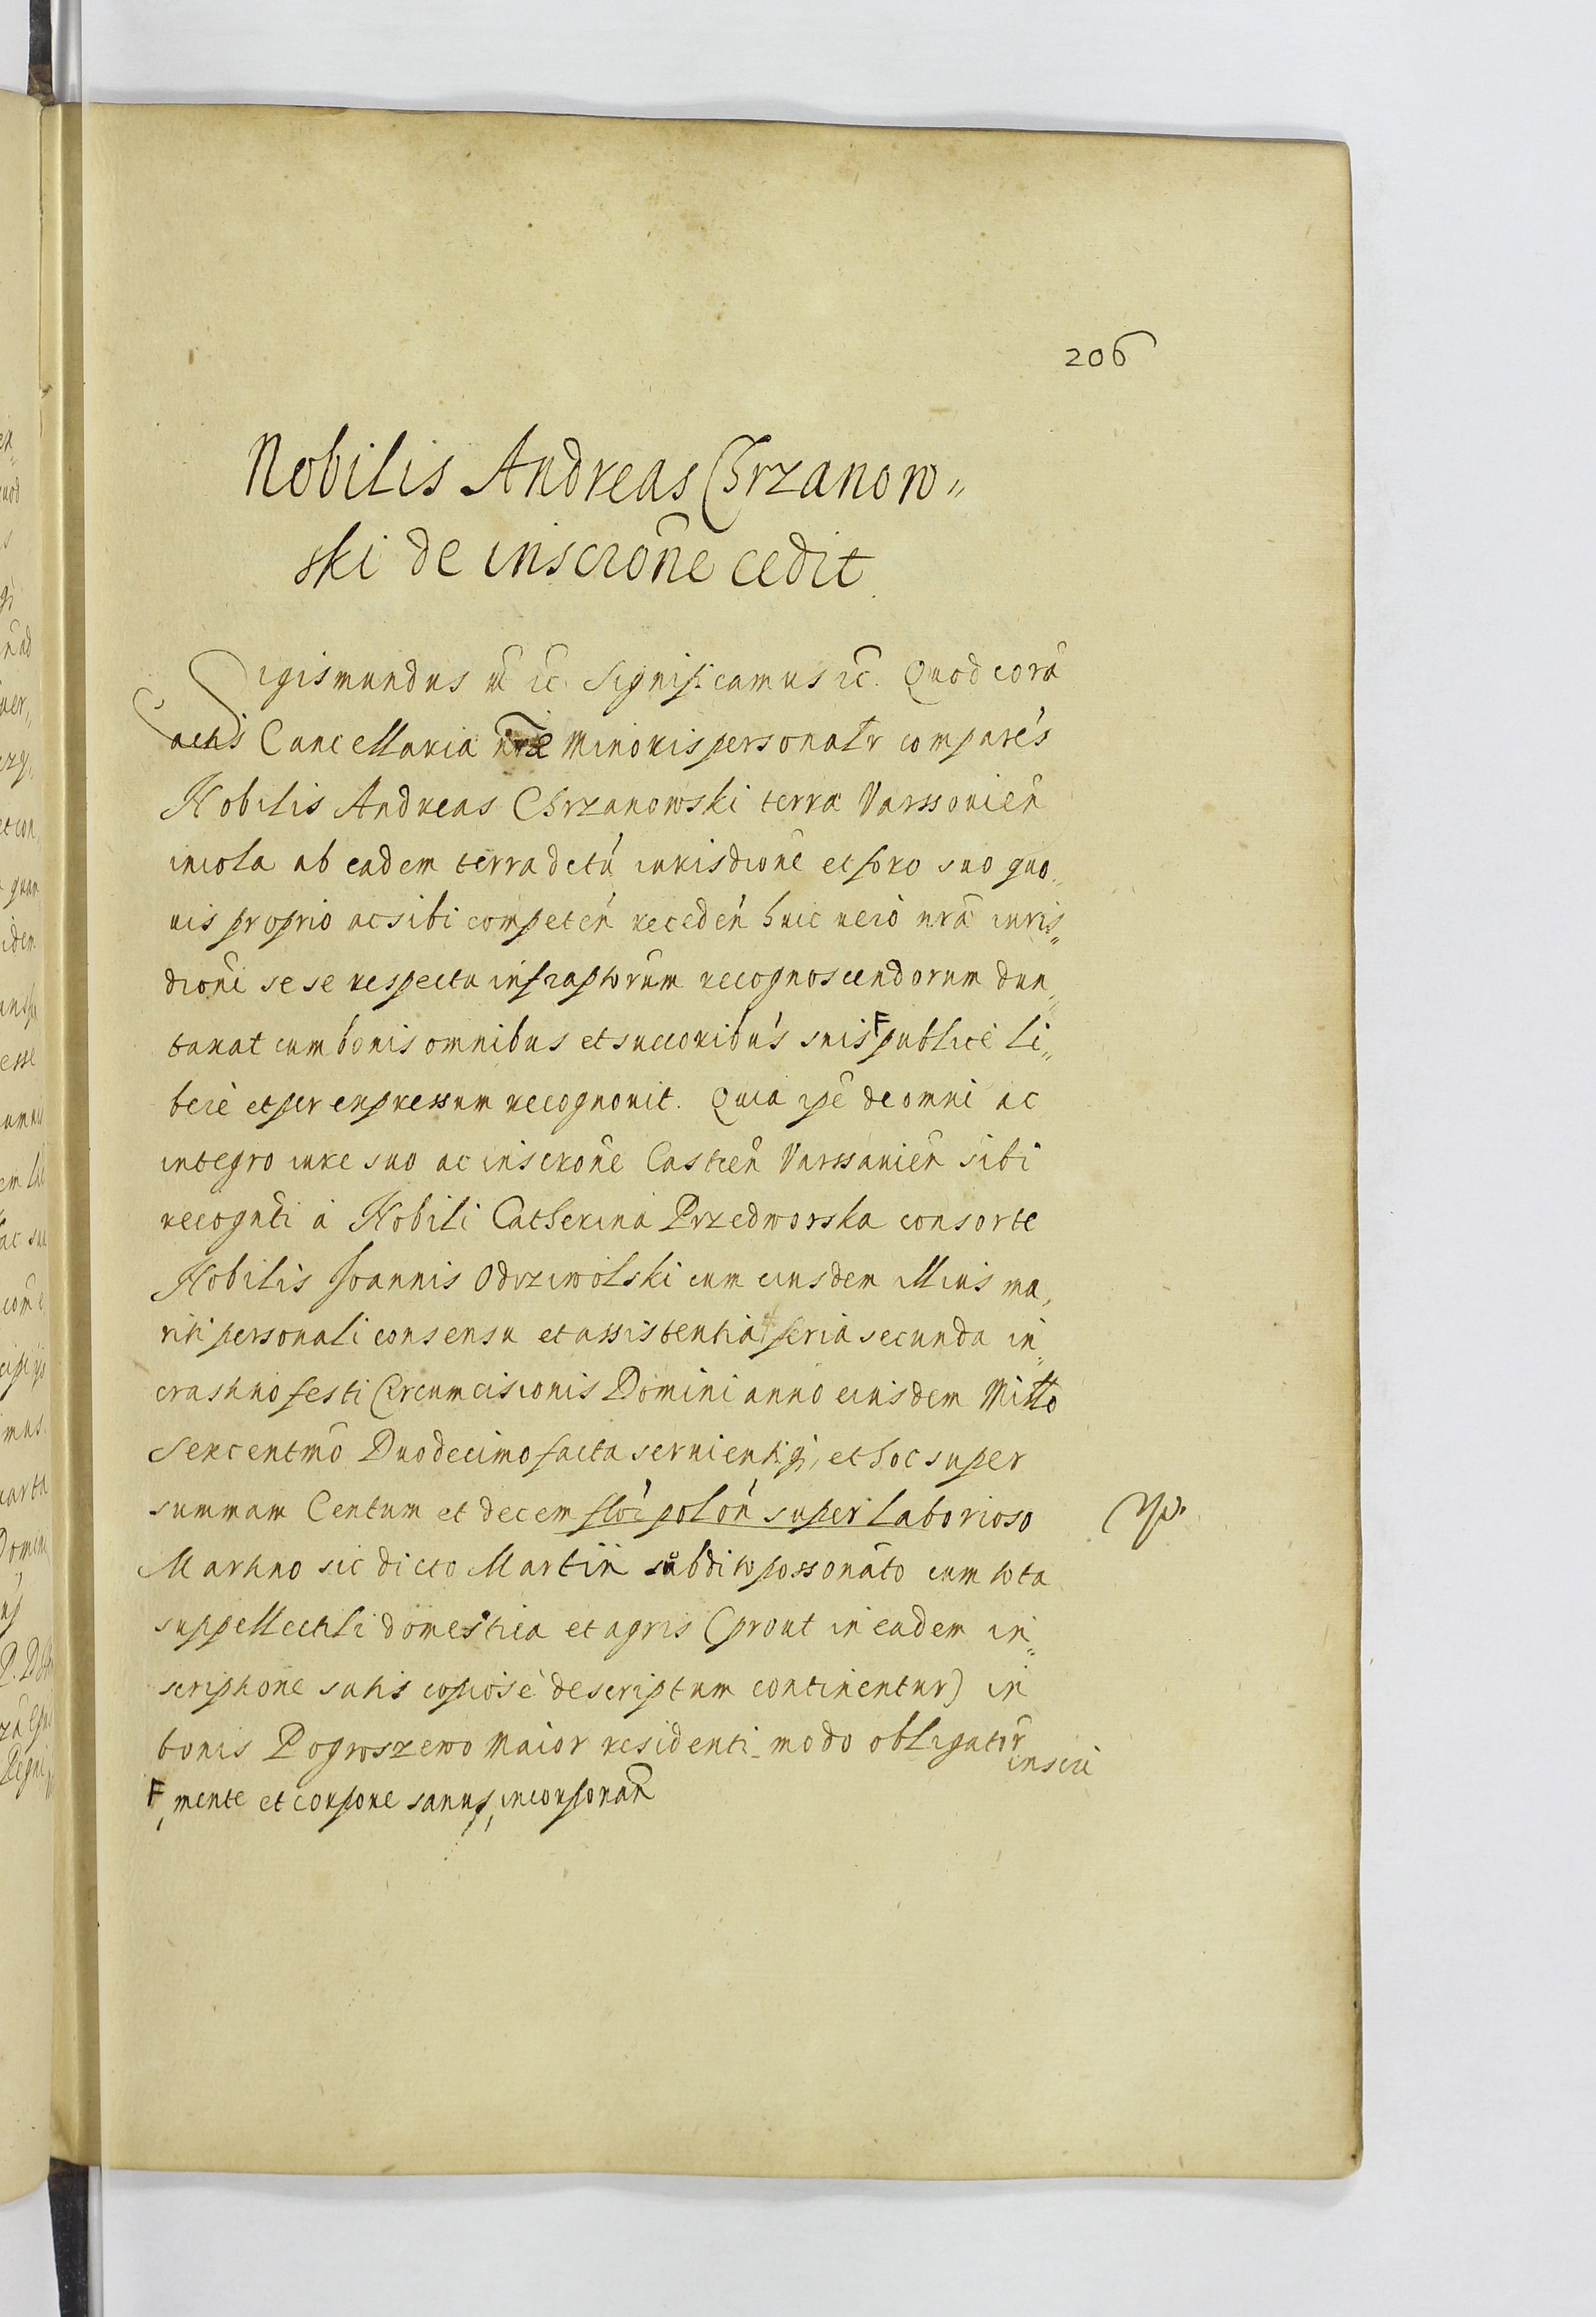 206
Nobilis Andreas Chrzanow„
ski de inscrōne cedit
Sigismundus ec̄ ec̄ Significamus ec̄. Quod corā
actis Cancellaria nrae Minoris personalr comparēs
Nobilis Andreas Chrzanowski terrae Varssovien̄
incola ab eadem terra dctū iurisdione et foro suo quo„
uis proprio ac sibi competen̄ receden̄ huic uerò nrā iuris„
dioni se se respectu infraptorum recognoscendorum dun„
taxat cum bonis omnibus et succoribus suis F publicè li„
berè et per expressum recognouit. Quia ipē de omni ac
integro iure suo ac inscrōne Castren̄ Varssauien̄ sibi
recogniti à Nobili Catherina Przedworska consorte
Nobilis Joannis Odrziwolski cum eiusdem illius ma„
riti personali consensu et assistentia feria secunda in
crastino festi Circumcisionis Domini anno eiusdem Millo
Sexcentmō Duodecimo facta seruienti, et hoc super
summam Centum et decem flor̄ polon̄ super laborioso
Martino sic dicto Martin subdito possonāto cum tota
suppellectili domestica et agris (prout in eadem in„
scriptione satis copiosè descriptum continentur) in
bonis Pogroszewo Maior residenti modo obligator̄
inscri
F, mente et corpore sanus, incorporan̄